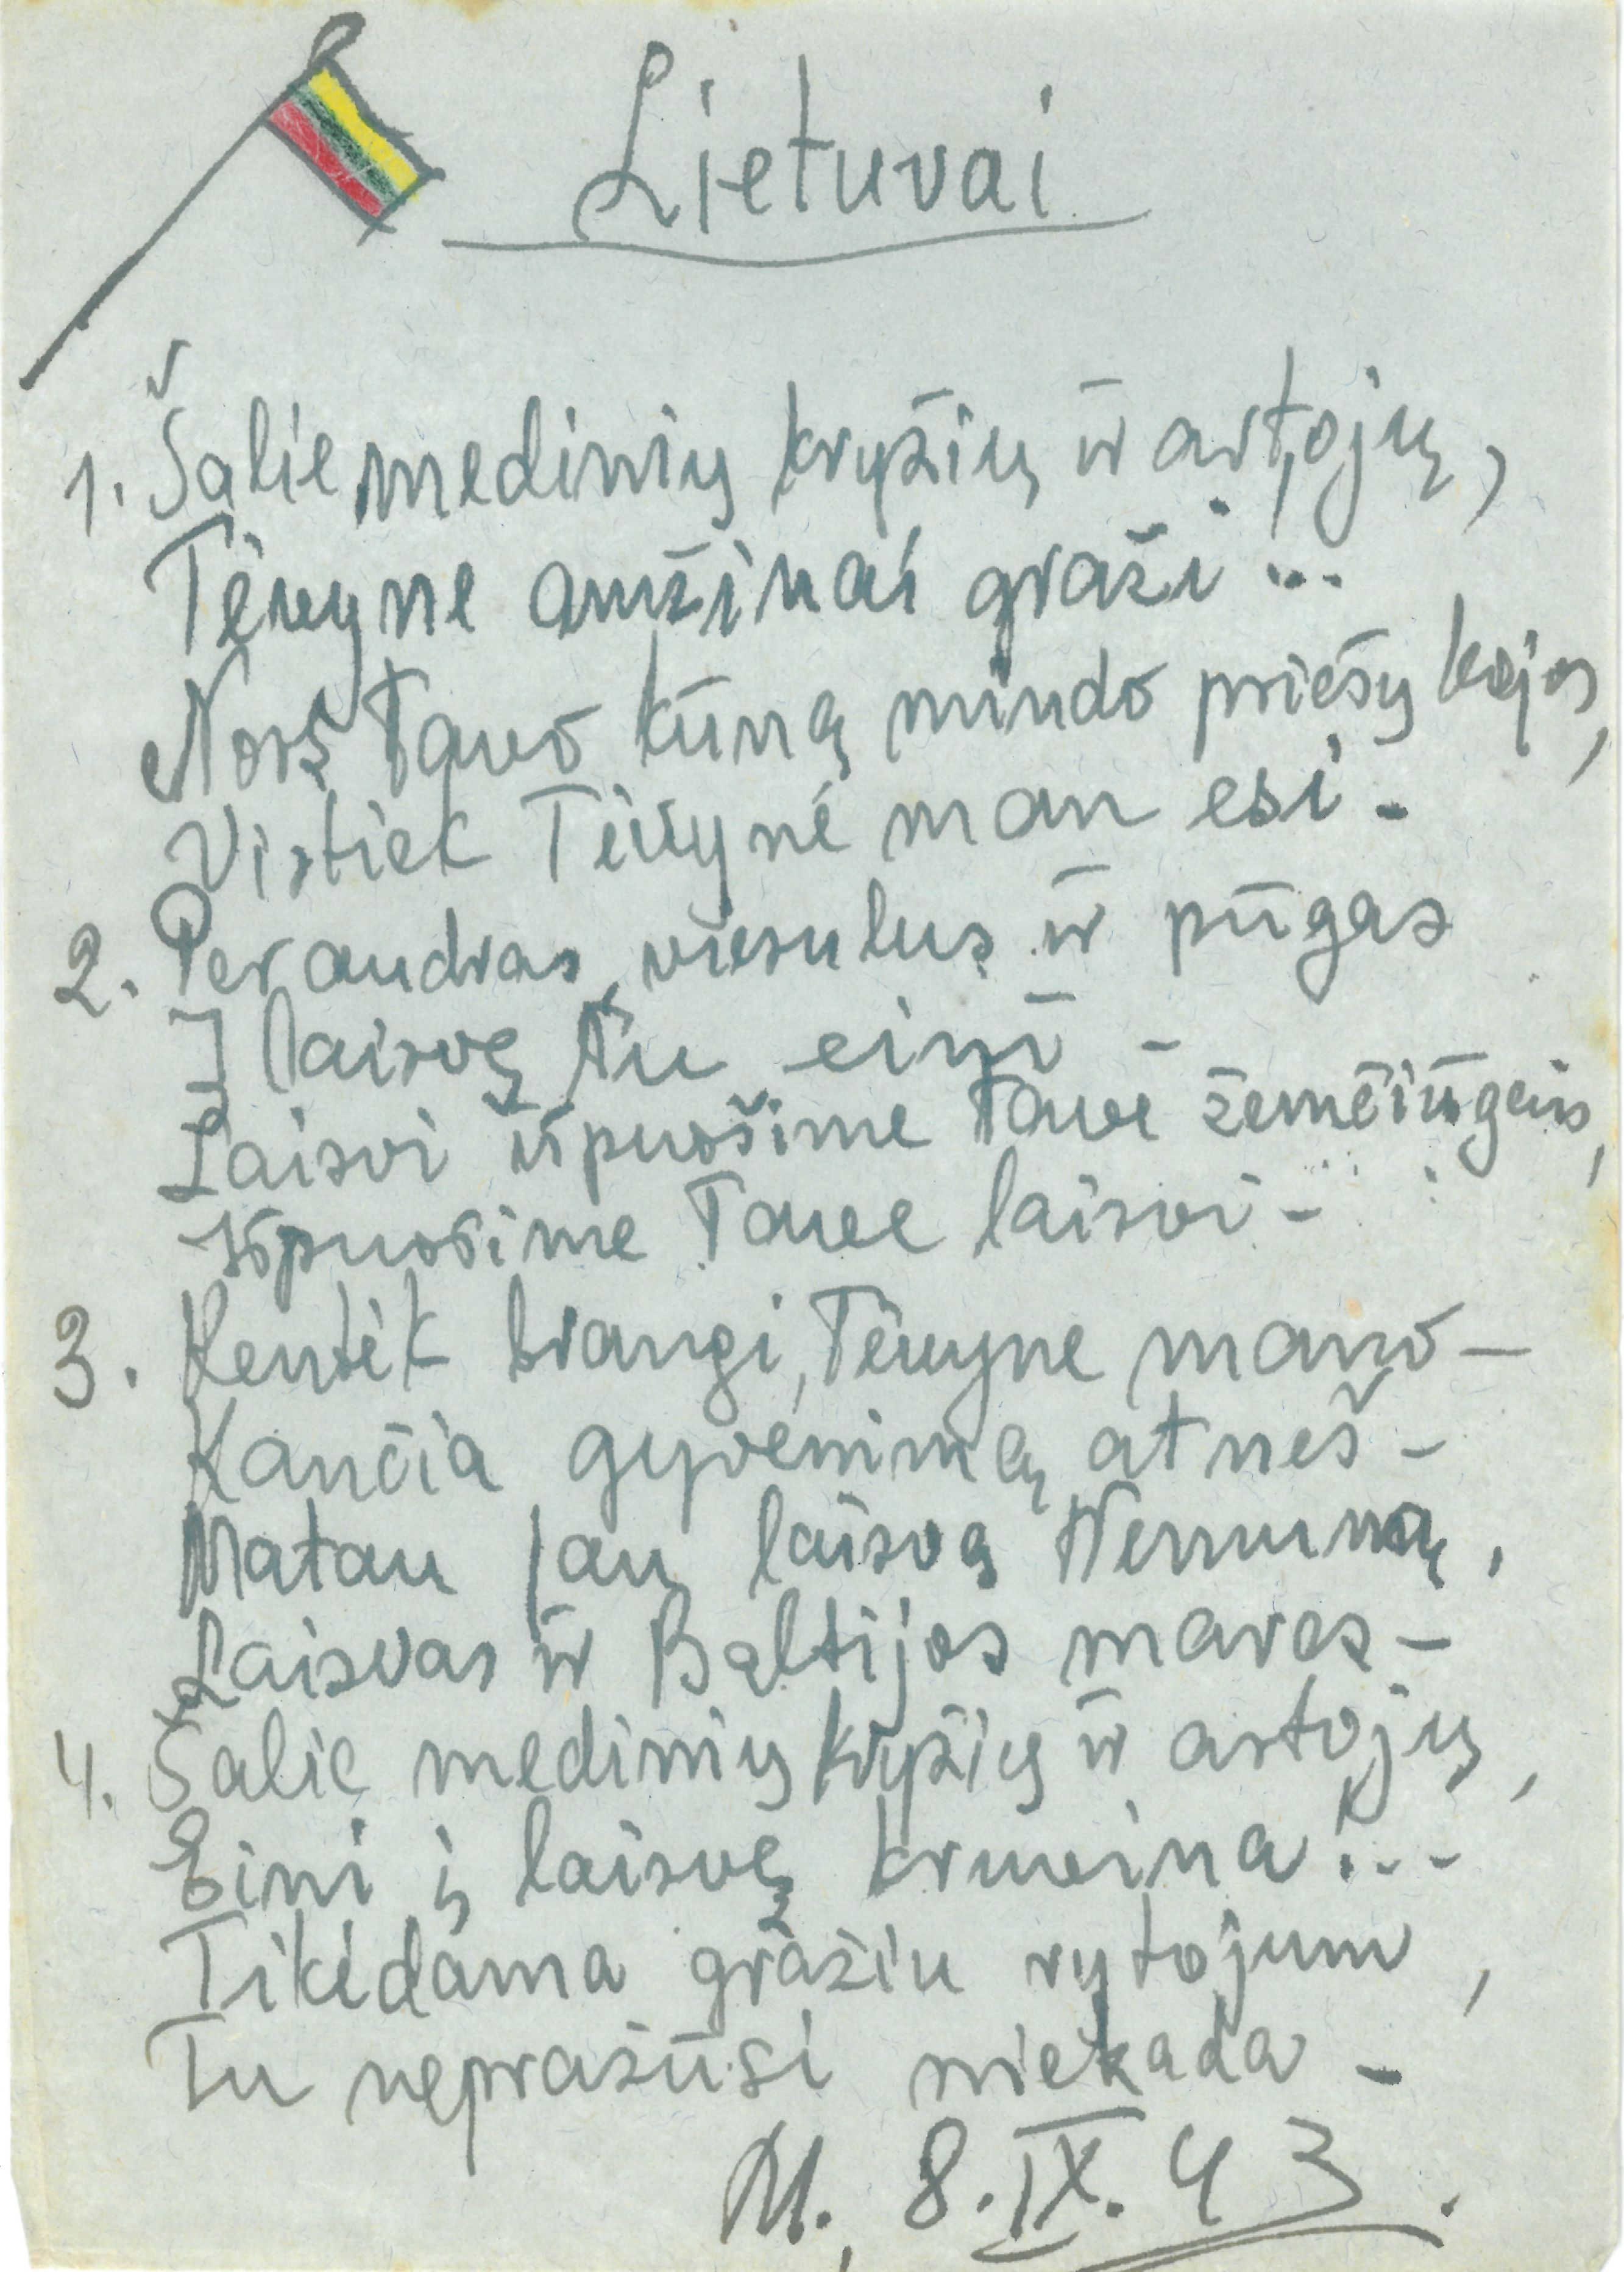 Lietuvai
1. Šalie medinių kryžių ir artojų,
Tėvyne amžinai graži...
Norš Tavo kūną mindo priešų kojos,
Vistiek Tėvyne man esi -
2. Per audras, viesulus ir pūgas
Į laisvę Tu eini -
Laisvi išpuošime Tave žemčiūgais,
Išpuošime Tave laisvi -
3. Kentėk brangi, Tėvyne mano -
Kančia gyvenimą atneš -
Matau jau laisvą Nemuną,
Laisvas ir Baltijos mares -
4. Šalie medinių kryžių ir artojų,
Eini į laisvę kruvina!...
Tikėdama gražiu rytojum,
Tu nepražūsi niekada -
M. 8.IX.43.